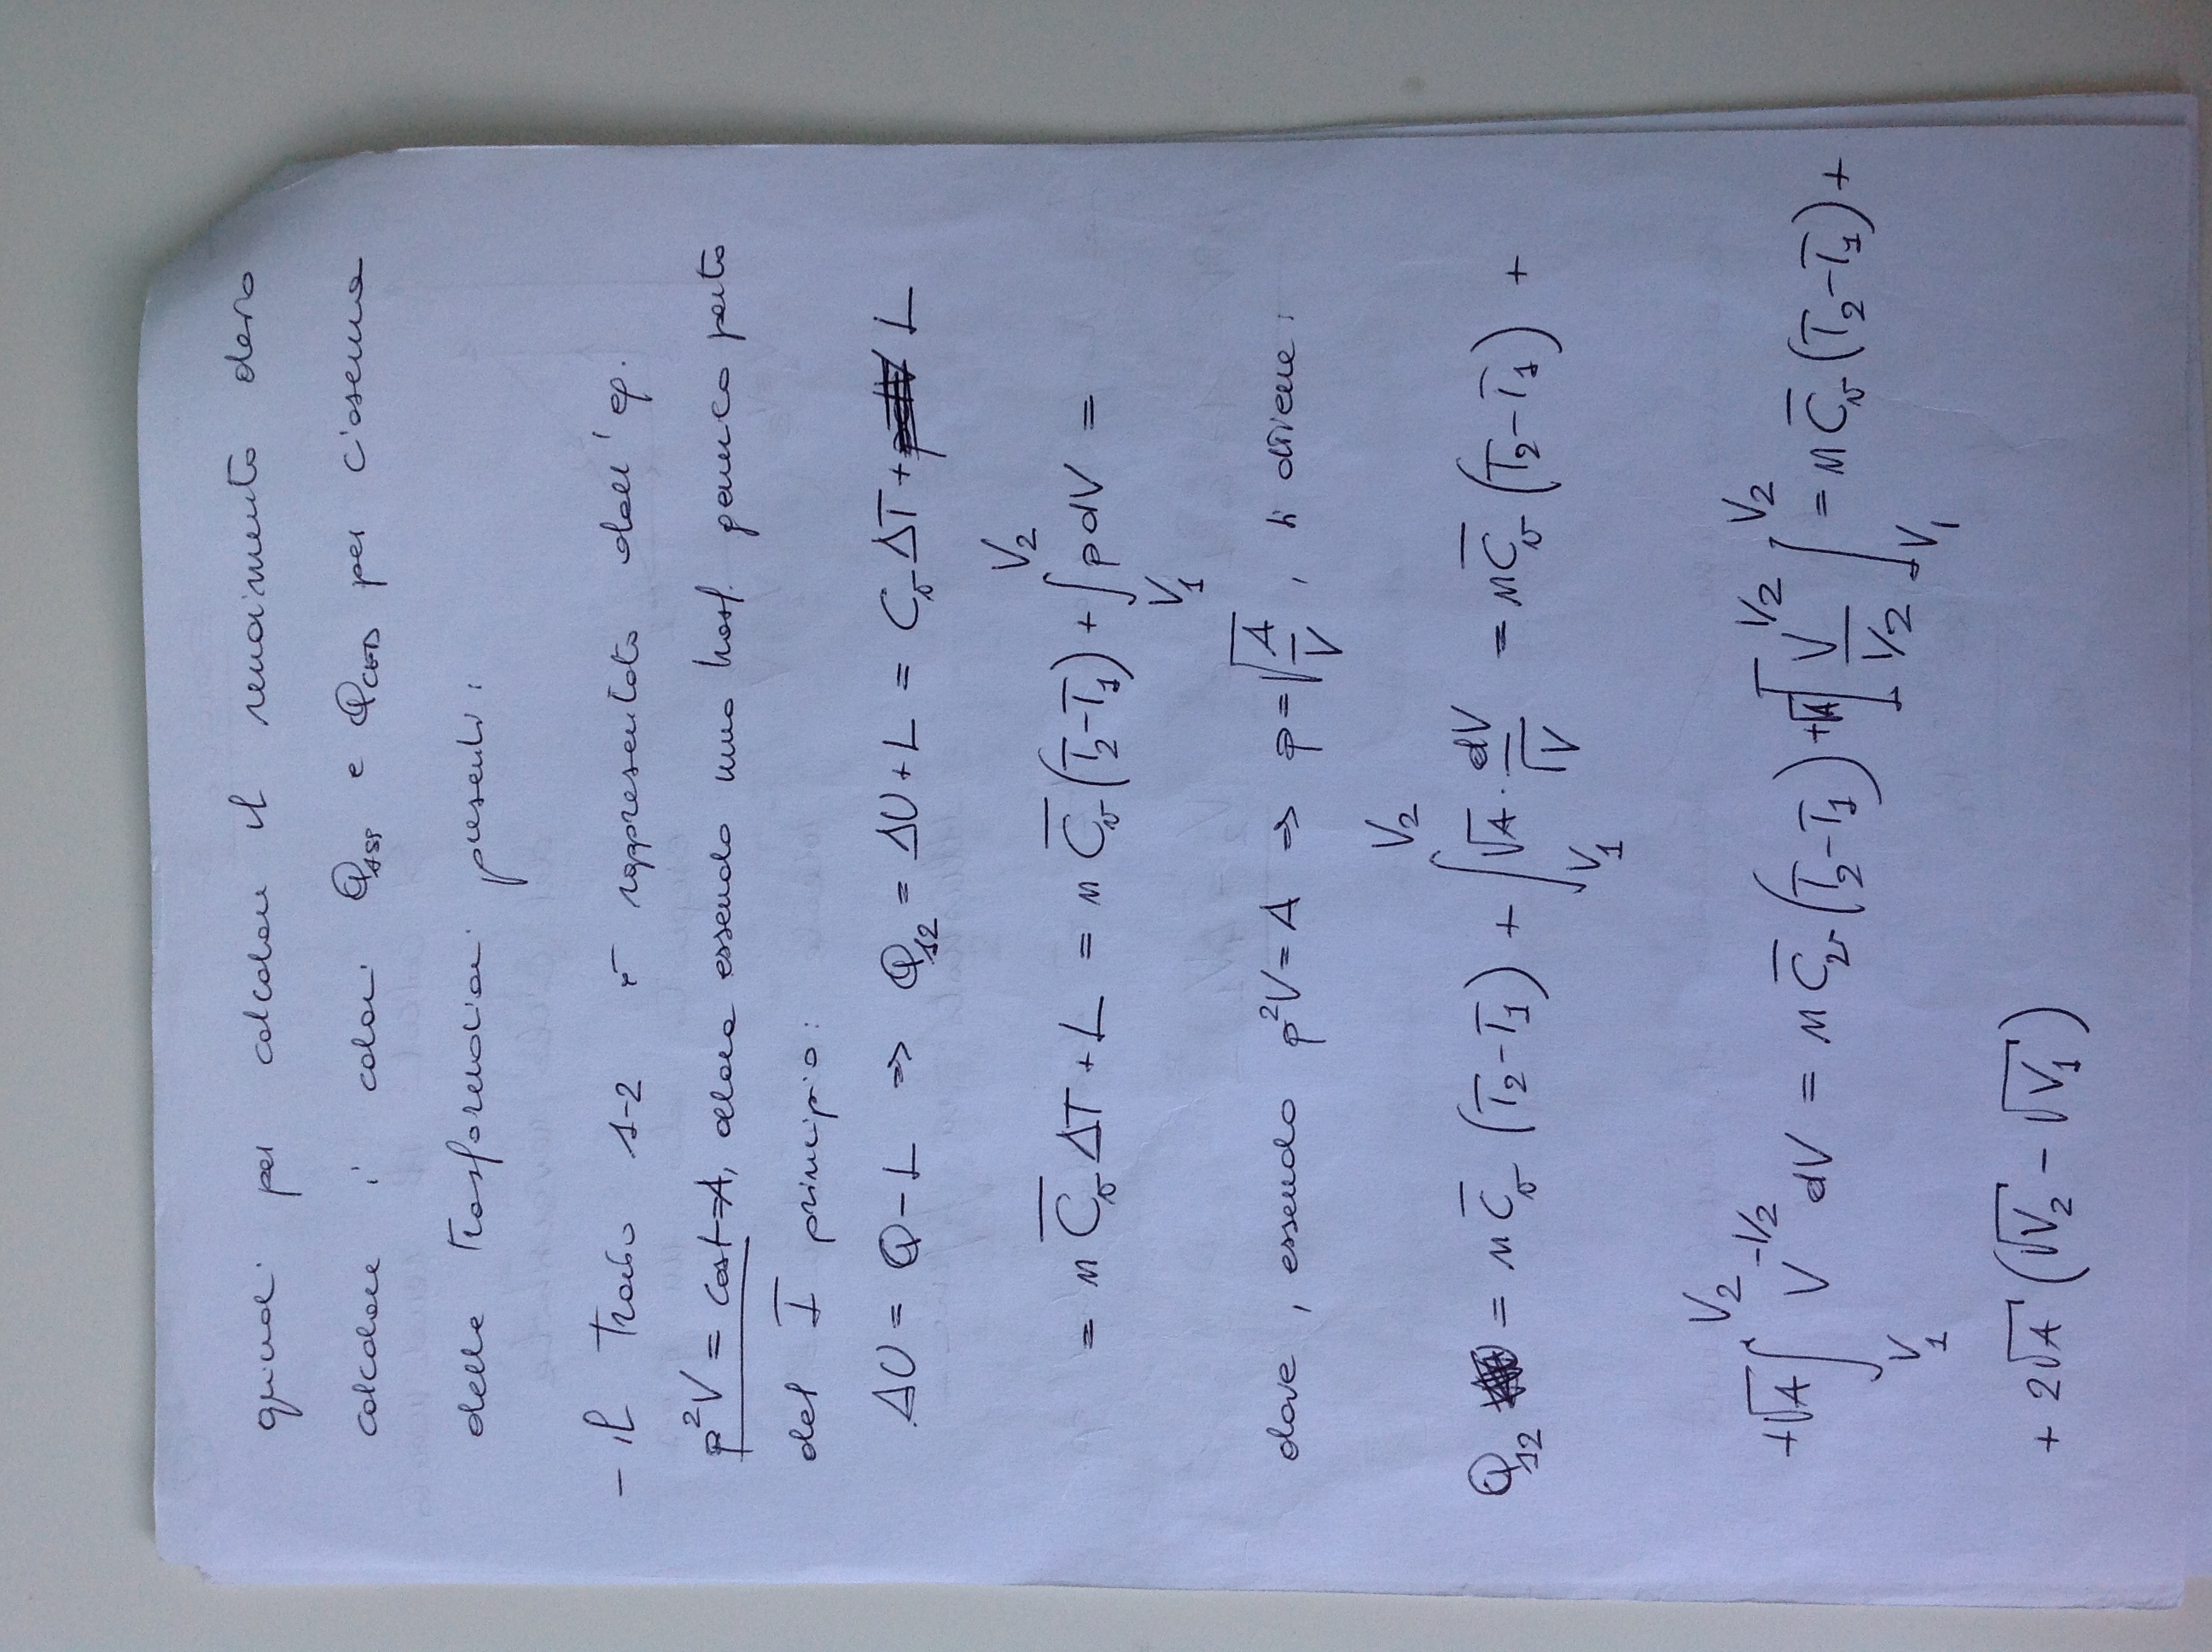 quindi per calcolare il rendimento devo
calcolare i calori Q_ASS e Q_CED per ciascuna
delle trasformazioni presenti:
- il tratto 1-2 è rappresentato dall'eq.
p²V = cost = A, allora essendo una trasf. generica parto
del I principio:
ΔU = Q - L ⇒ Q₁₂ = ΔU + L = C_v ΔT + L
= n C̅_v ΔT + L = n C̅_v (T₂ - T₁) + ∫_{V₁}^{V₂} p dV =
dove, essendo p²V = A ⇒ p = √(A/V), si ottiene:
Q₁₂ = n C̅_v (T₂ - T₁) + ∫_{V₁}^{V₂} √A · dV/√V = n C̅_v (T₂ - T₁) +
+ √A ∫_{V₁}^{V₂} V^{-1/2} dV = n C̅_v (T₂ - T₁) + √A [V^{1/2} / 1/2]_{V₁}^{V₂} = n C̅_v (T₂ - T₁) +
+ 2√A (√V₂ - √V₁)